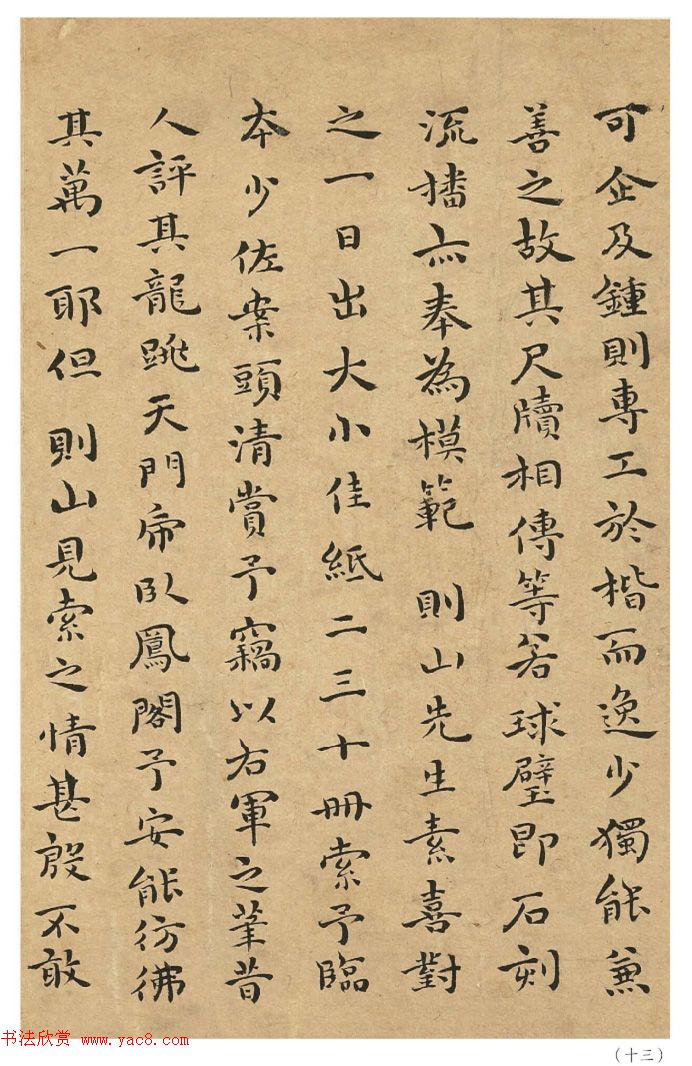 可企及鍾則專工於楷而逸少獨能兼
善之故其尺牘相傳等若球璧即石刻
流播亦奉為模範 則山先生素喜對
之一日出大小佳紙二三十冊索予臨
本少佐案頭清賞予竊以右軍之筆昔
人評其龍跳天門帝臥鳳閣予安能彷彿
其萬一耶但 則山見索之情甚殷不敢
书法欣赏 www.yac8.com
(十三)